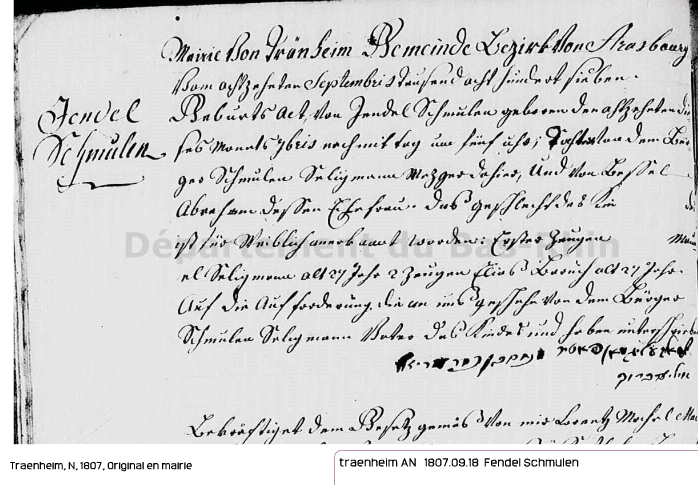 Mairie Von Tränheim Gemeinde Bezirk Von Strasbourg
Vom achtzehnten Septembris tausend acht hundert sieben.
Geburts Act, Von Fendel Schmulen geboren den achtzehnten di
Fendel
Schmulen
ses Monats 7bris nachmittag um fünf uhr; Tochter von dem Bür
ger Schmulen Seligmann Metzger dahier, Und Von Bessel
Abraham dessen Ehefrau. das geschlecht des Kin
ist für Weiblich anerkannt worden: Erster Zeugen
el Seligmann alt 27 Jahr 2 Zeugen Elias Baruch alt 27 Jahr.
Auf die Aufforderung die an uns geschehe Von dem Bürger
Schmulen Seligmann Vater des Kindes und haben unterschrieben
Bekräftiget dem Gesetz gemäs Von mir Lorentz
Département du Bas-Rhin
Traenheim, N, 1807, Original en mairie
traenheim AN 1807.09.18 Fendel Schmulen